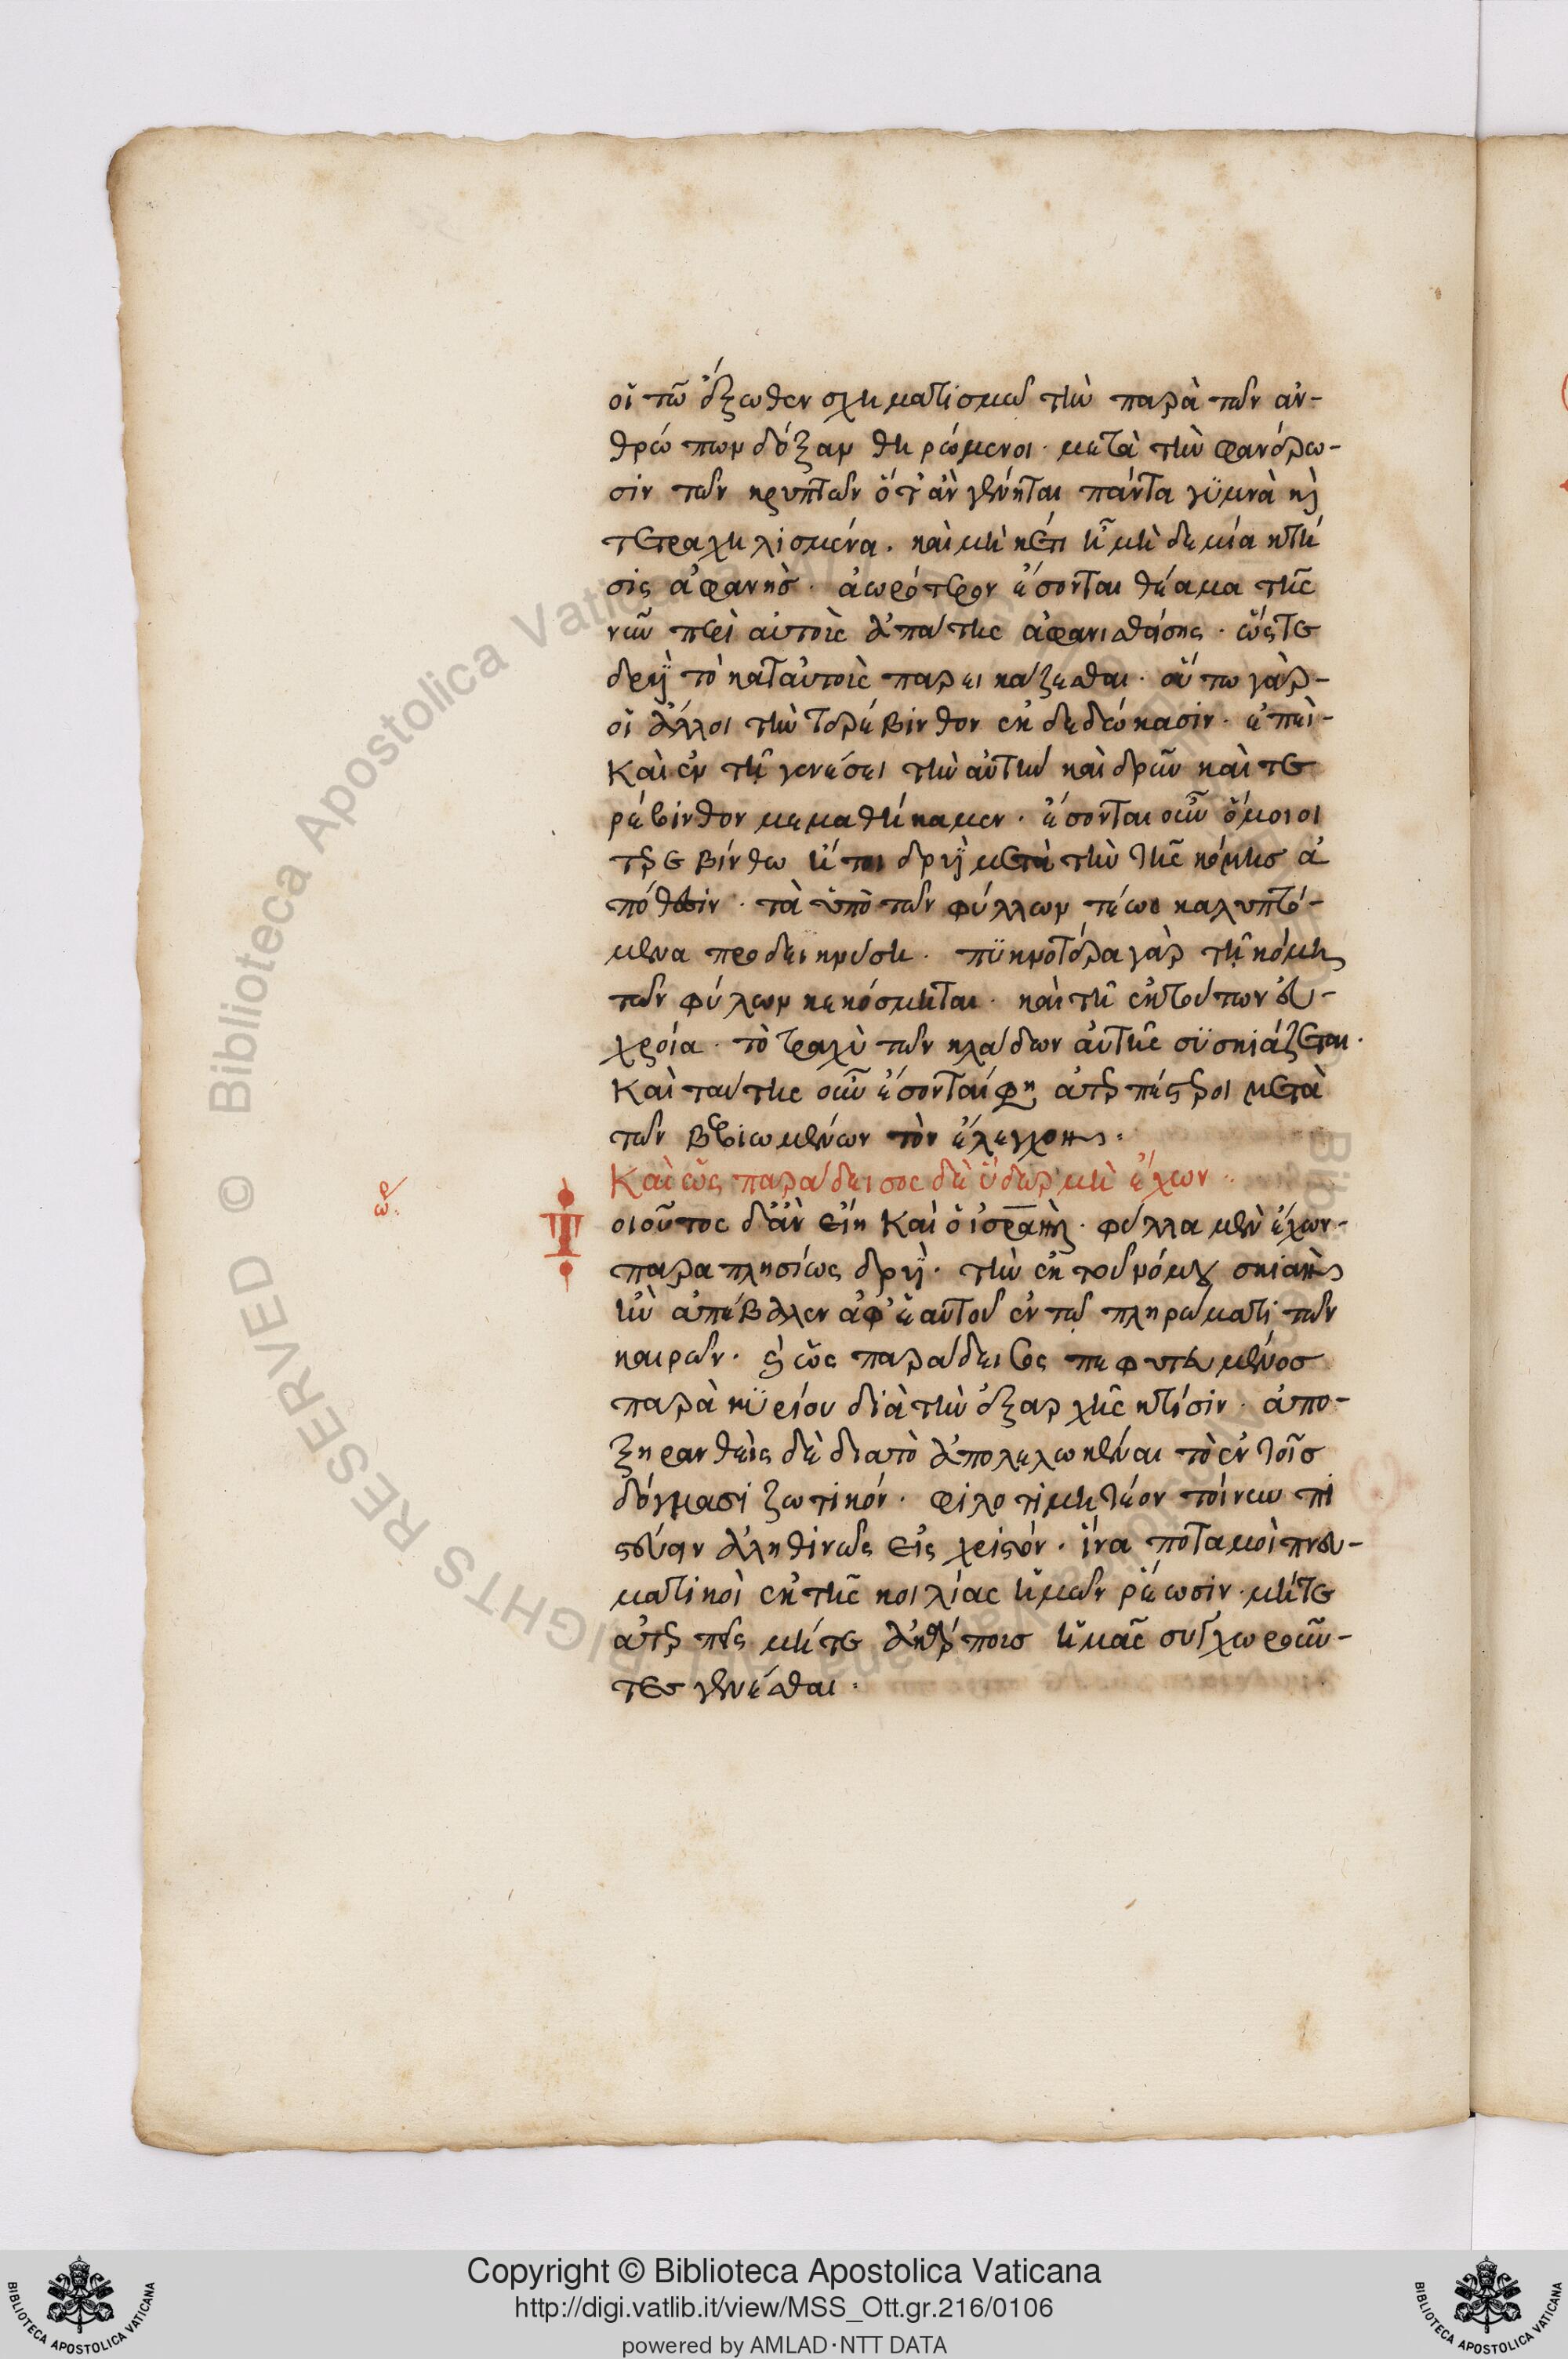 οἱ τῶ ἔξωθεν σχηματισμῶ τὴν παρὰ τῶν ἀν-
θρώπων δόξαν θηρώμενοι· μετὰ τὴν φανέρω-
σιν τῶν κρυπτῶν ὅτ' ἂν γένηται πάντα γυμνὰ καὶ
τετραχηλισμένα. καὶ μηκέτι ἦ μηδεμία κτή
σις ἀφανής· ἀωρότερον ἔσονται θέαμα τῆς
νῦν περὶ αὐτοῖς ἀπάτης ἀφανισθείσης· ὥστε
δρυῒ τὸ κατ' αὐτοὶς παρεικάζεσθαι· οὕτω γὰρ-
οἱ ἄλλοι τὴν τερέβινθον ἐκδεδώκασιν· ἐπεὶ-
Καὶ ἐν τῆ γενέσει τὴν αὐτὴν καὶ δρῦν καὶ τε
ρέβινθον μεμαθήκαμεν· ἔσονται οὖν ὅμοιοι
τερεβίνθω ἤτοι δρυῒ μετὰ τὴν τῆς κόμης ἀ
πόθεσιν· τὰ ὑπὸ τῶν φύλλων τέως καλυπτό-
μενα προδεικνύση· πυκνοτέρα γὰρ τῆ κόμη
τῶν φύλων κεκόσμηται· καὶ τῆ ἐκ τούτων εὐ-
χροία· τὸ τραχὺ τῶν κλάδων αὐτῆς συσκιάζεται·
Καὶ ταύτης οὖν ἔσονται φη ἀτερπέστεροι μετὰ
τῶν βεβιωμένων τὸν ἔλεγχον·
Καὶ ὡς παράδεισος δὲ ὕδωρ μὴ ἔχων··
ωρ
Τ
οιοῦτος δ' ἂν εἴη Καὶ ὁ ἰσραηλ· φύλλα μὲν ἔχων-
παραπλησίως δρυῒ· τὴν ἐκ τοῦ νόμου σκιὰν
ἣν ἀπέβαλεν ἀφ' ἑαυτοῦ ἐν τῶ πληρώματι τῶν
καιρῶν· καὶ ὡς παράδεισος πεφυτευμένος
παρὰ κυρίου διὰ τὴν ἐξαρχῆς κτίσιν· ἀπο-
ξηρανθεὶς δὲ διατὸ ἀπολελωκέναι τὸ ἐν τοῖς
δόγμασι ζωτικόν· φιλοτιμητέον τοίνυν πι
στεύειν ἀληθινῶς εἰς χριστόν· ἵνα ποταμοὶ πνευ-
ματικοὶ ἐκ τῆς κοιλίας ἡμῶν ῥέωσιν· μήτε
ἀτερπεῖς μήτε ἀκάρποις ἡμᾶς συγχωροῦν-
τες γενέσθαι·
Copyright © Biblioteca Apostolica Vaticana
http://digi.vatlib.it/view/MSS_Ott.gr.216/0106
powered by AMLAD·NTT DATA